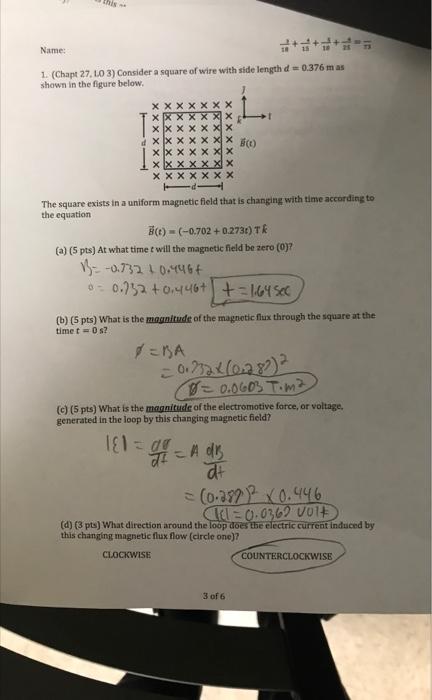 this
Name:
18 + 15 + 10 + 25 = 73
1. (Chapt 27, LO 3) Consider a square of wire with side length d = 0.376 m as
shown in the figure below.
J
× × × × × × ×
× × × × × × × k I
× × × × × × ×
d × × × × × × × B⃗(t)
× × × × × × ×
× × × × × × ×
d
The square exists in a uniform magnetic field that is changing with time according to
the equation
B⃗(t) = (−0.702 + 0.273t) T k̂
(a) (5 pts) At what time t will the magnetic field be zero (0)?
B = -0.732 + 0.446t
0 = 0.732 + 0.446t t = 1.64 sec
(b) (5 pts) What is the magnitude of the magnetic flux through the square at the
time t = 0 s?
Ø = BA
= 0.732 × (0.287)²
Ø = 0.0603 T·m²
(c) (5 pts) What is the magnitude of the electromotive force, or voltage,
generated in the loop by this changing magnetic field?
|ε| = dØ/dt = A dB/dt
= (0.287)² × 0.446
|ε| = 0.0367 volt
(d) (3 pts) What direction around the loop does the electric current induced by
this changing magnetic flux flow (circle one)?
CLOCKWISE COUNTERCLOCKWISE
3 of 6